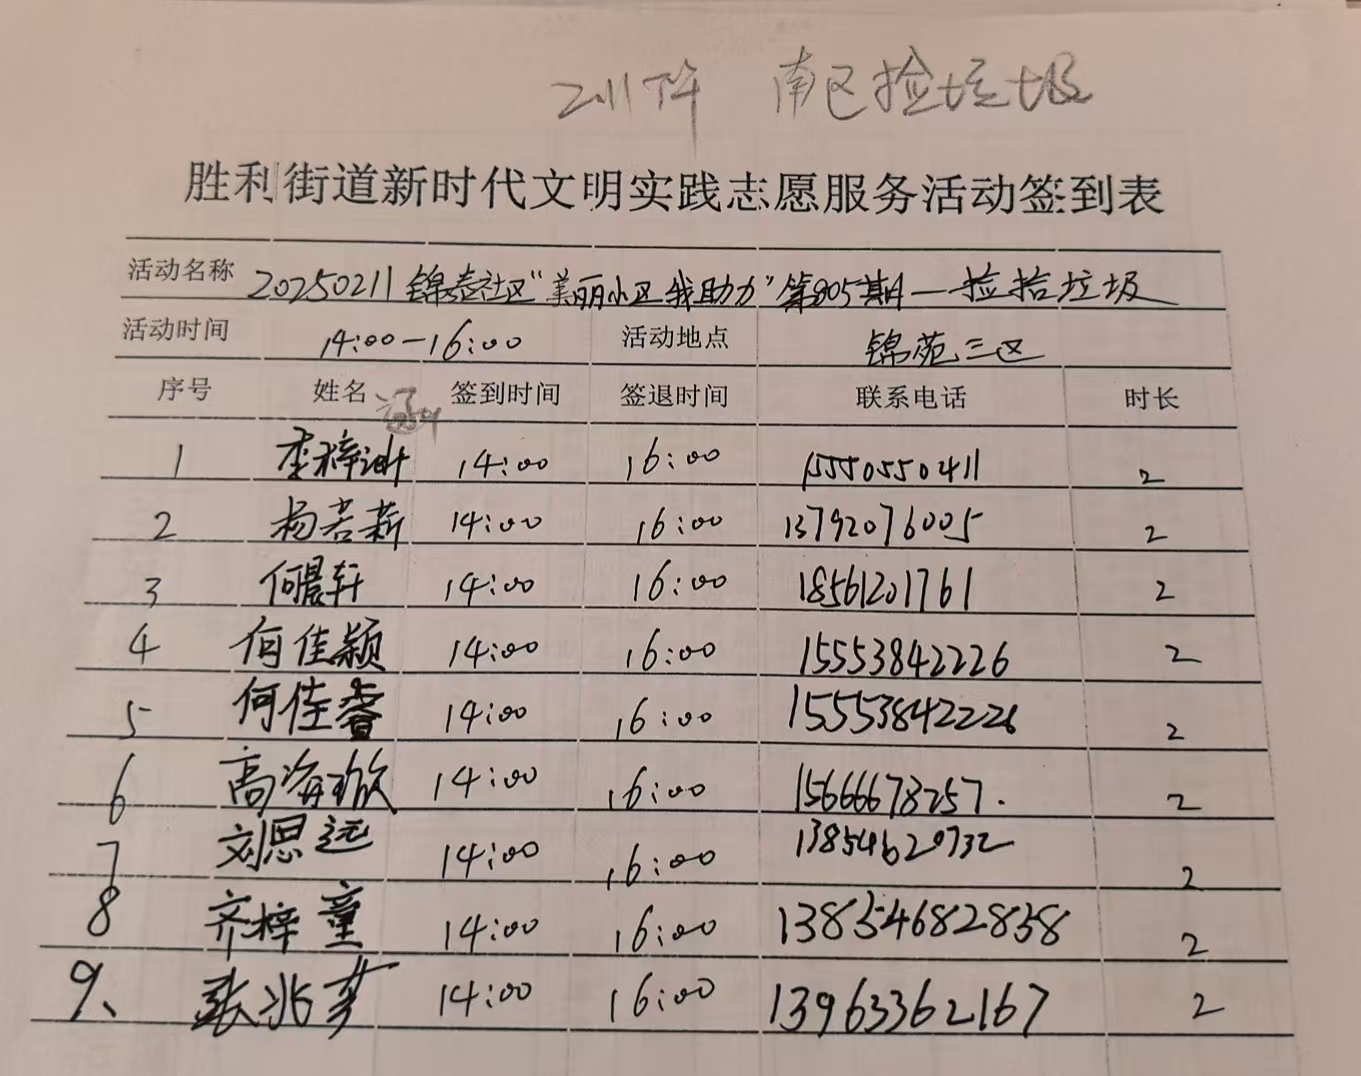 211下午 南区捡垃圾
胜利街道新时代文明实践志愿服务活动签到表
活动名称 20250211锦泰社区“美丽小区我助力”第805期—捡拾垃圾
活动时间 14:00-16:00 活动地点 锦苑三区
序号 姓名 签到时间 签退时间 联系电话 时长
涵
1 李梓涵 14:00 16:00 15550550411 2
2 杨若薪 14:00 16:00 13792076005 2
3 何晨轩 14:00 16:00 18561201761 2
4 何佳颖 14:00 16:00 15553842226 2
5 何佳睿 14:00 16:00 15553842226 2
6 高海欣 14:00 16:00 15666678257. 2
7 刘思远 14:00 16:00 13854620732 2
8 齐梓童 14:00 16:00 13854682838 2
9、 张兆 14:00 16:00 13963362167 2